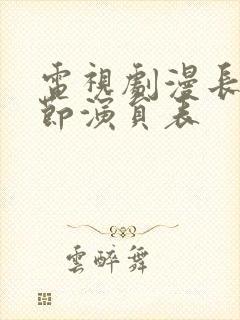 電視劇漫長
節演員表
雲醉舞